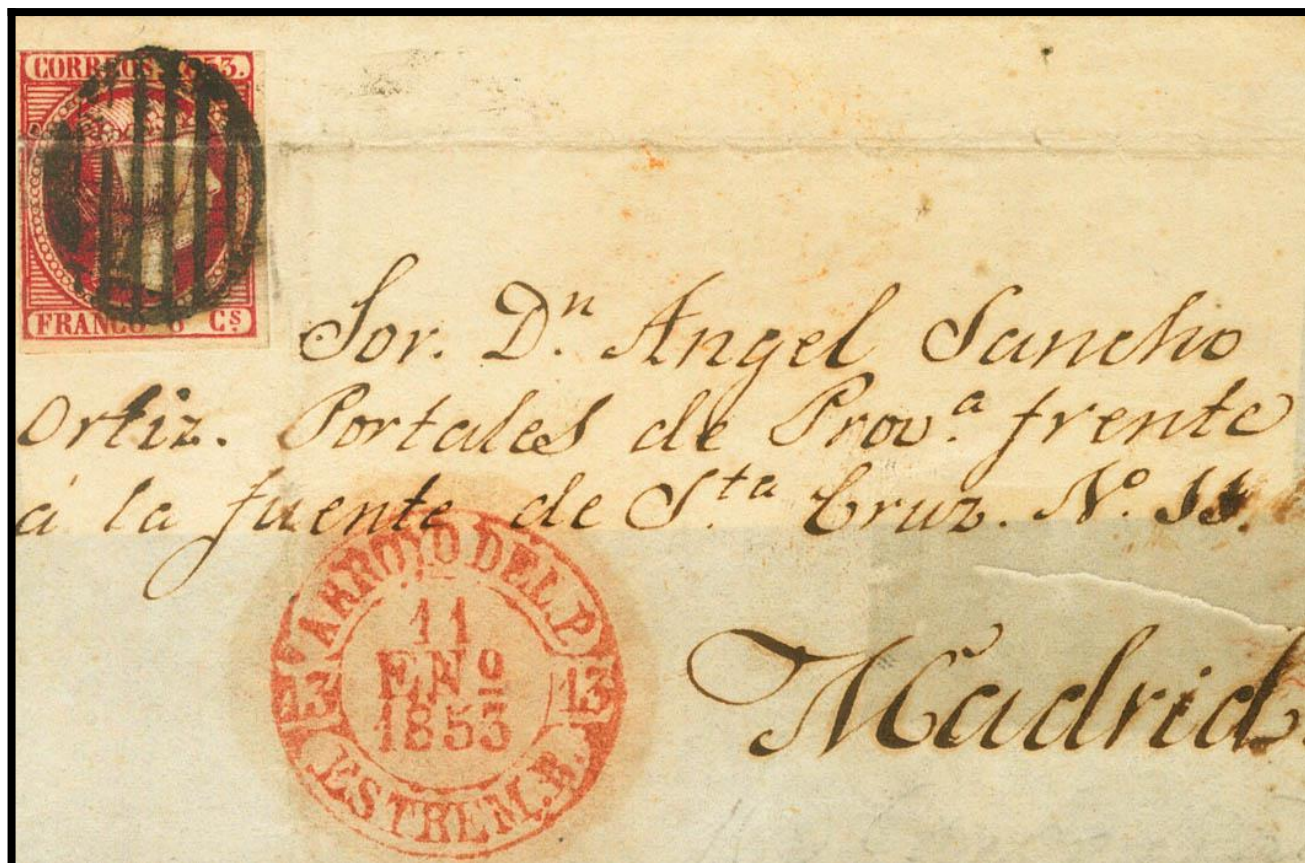 CORREOS 1853.
FRANCO 6 Cs
Sor. Dn. Angel Sancho
Ortiz. Portales de Prov.a frente
á la fuente de S.ta Cruz. No. 11.
ARROYO DEL.P.
11
ENo
1853
13 13
ESTREM.B.
Madrid.